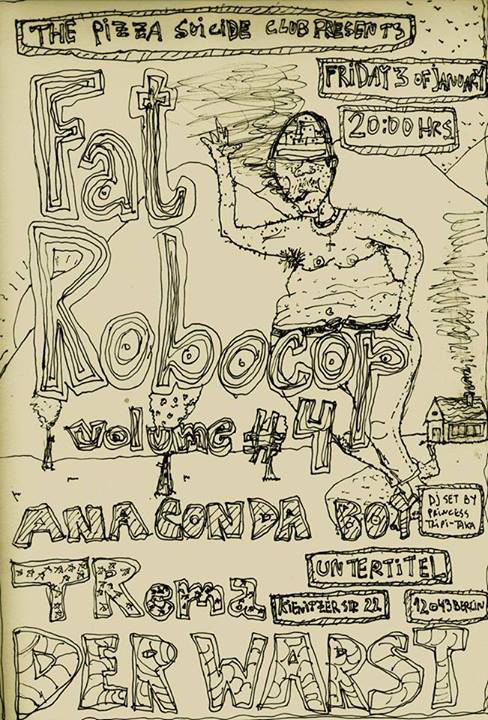 THE PIZZA SUICIDE CLUB PRESENTS
FRIDAY 3 OF JANUARY
20:00 HRS
Fat
Robocop
volume #4
ANACONDA BOY
DJ SET BY
PRINCESS
TRema
UNTERTITEL
KIENITZER STR 22
12043 BERLIN
DER WARST